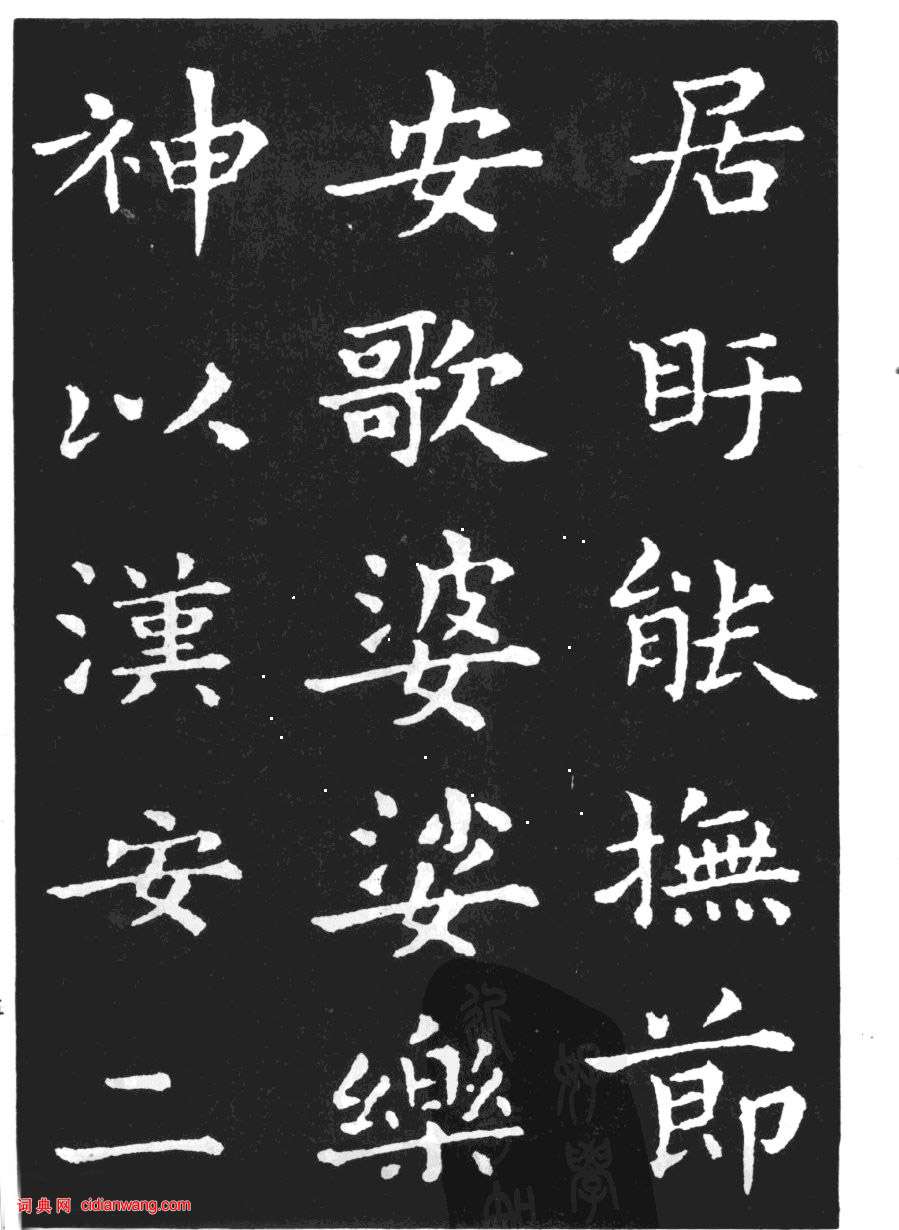 居盱能撫節
安歌婆娑樂
神以漢安二
词典网 cidianwang.com